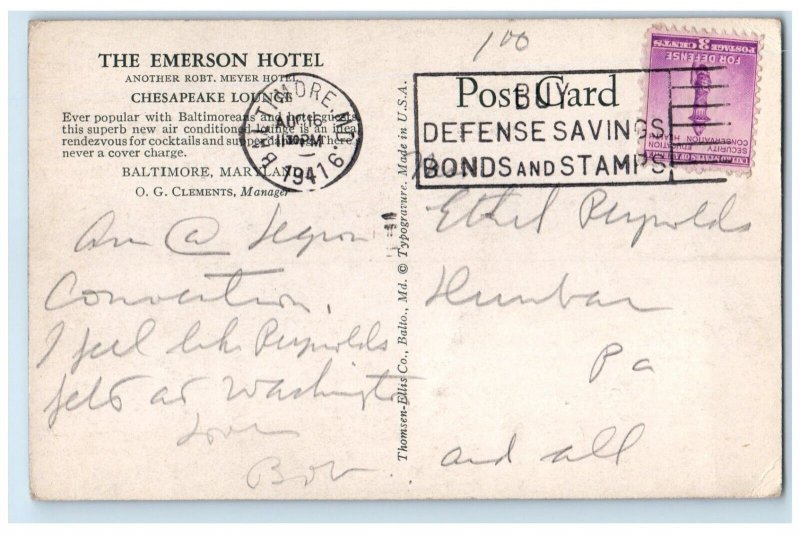 100
THE EMERSON HOTEL
ANOTHER ROBT. MEYER HOTEL
CHESAPEAKE LOUNGE
Ever popular with Baltimoreans and hotel guests
this superb new air conditioned lounge is an ideal
rendezvous for cocktails and supper dancing. There's
never a cover charge.
BALTIMORE, MARYLAND
O. G. CLEMENTS, Manager
BALTIMORE, MD.
AUG 16
11 30 PM
1941
6
Am @ Legion
Convention.
I feel like Reynolds
felt at Washington
Love
Bob
Thomsen-Ellis Co., Balto., Md. © Typogravure. Made in U.S.A.
Post Card
BUY
DEFENSE SAVINGS
BONDS AND STAMPS
POSTAGE 3 CENTS
FOR DEFENSE
SECURITY
EDUCATION
CONSERVATION
HEALTH
UNITED STATES OF AMERICA
Ethel Reynolds
Dunbar
Pa
and all